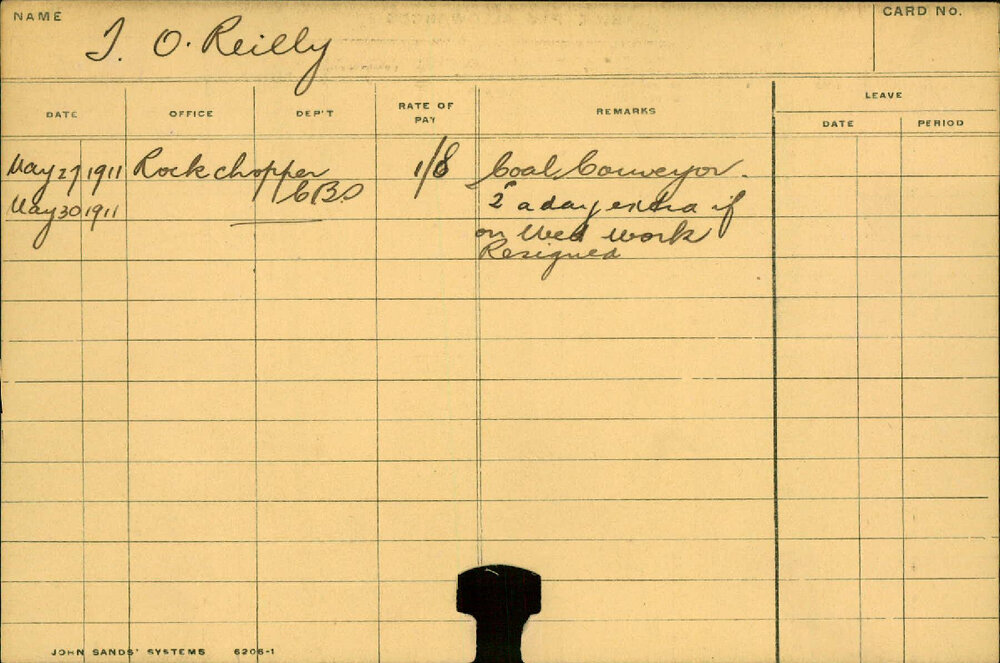 NAME
CARD No.
J. O. Reilly
LEAVE
DATE OFFICE DEP'T RATE OF PAY REMARKS DATE PERIOD
May 27 1911 Rock chopper 1/8 Coal Conveyor.
May 30 1911 2 a day extra if
on Wed work
Resigned
JOHN SANDS' SYSTEMS 6206-1